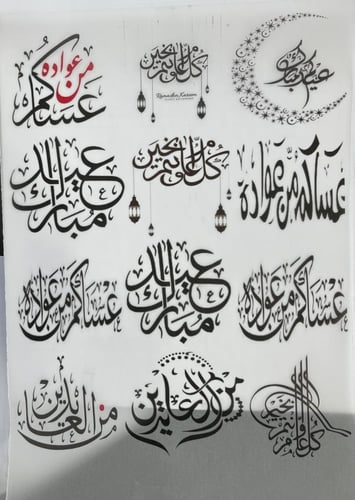 عساكم من عواده
كل عام وأنتم بخير
Ramadan Kareem
عيدكم مبارك
عيد مبارك
كل عام وأنتم بخير
عساكم من عواده
عساكم من عواده
عيد مبارك
عساكم من عواده
من العايدين
من العايدين
كل عام وأنتم بخير